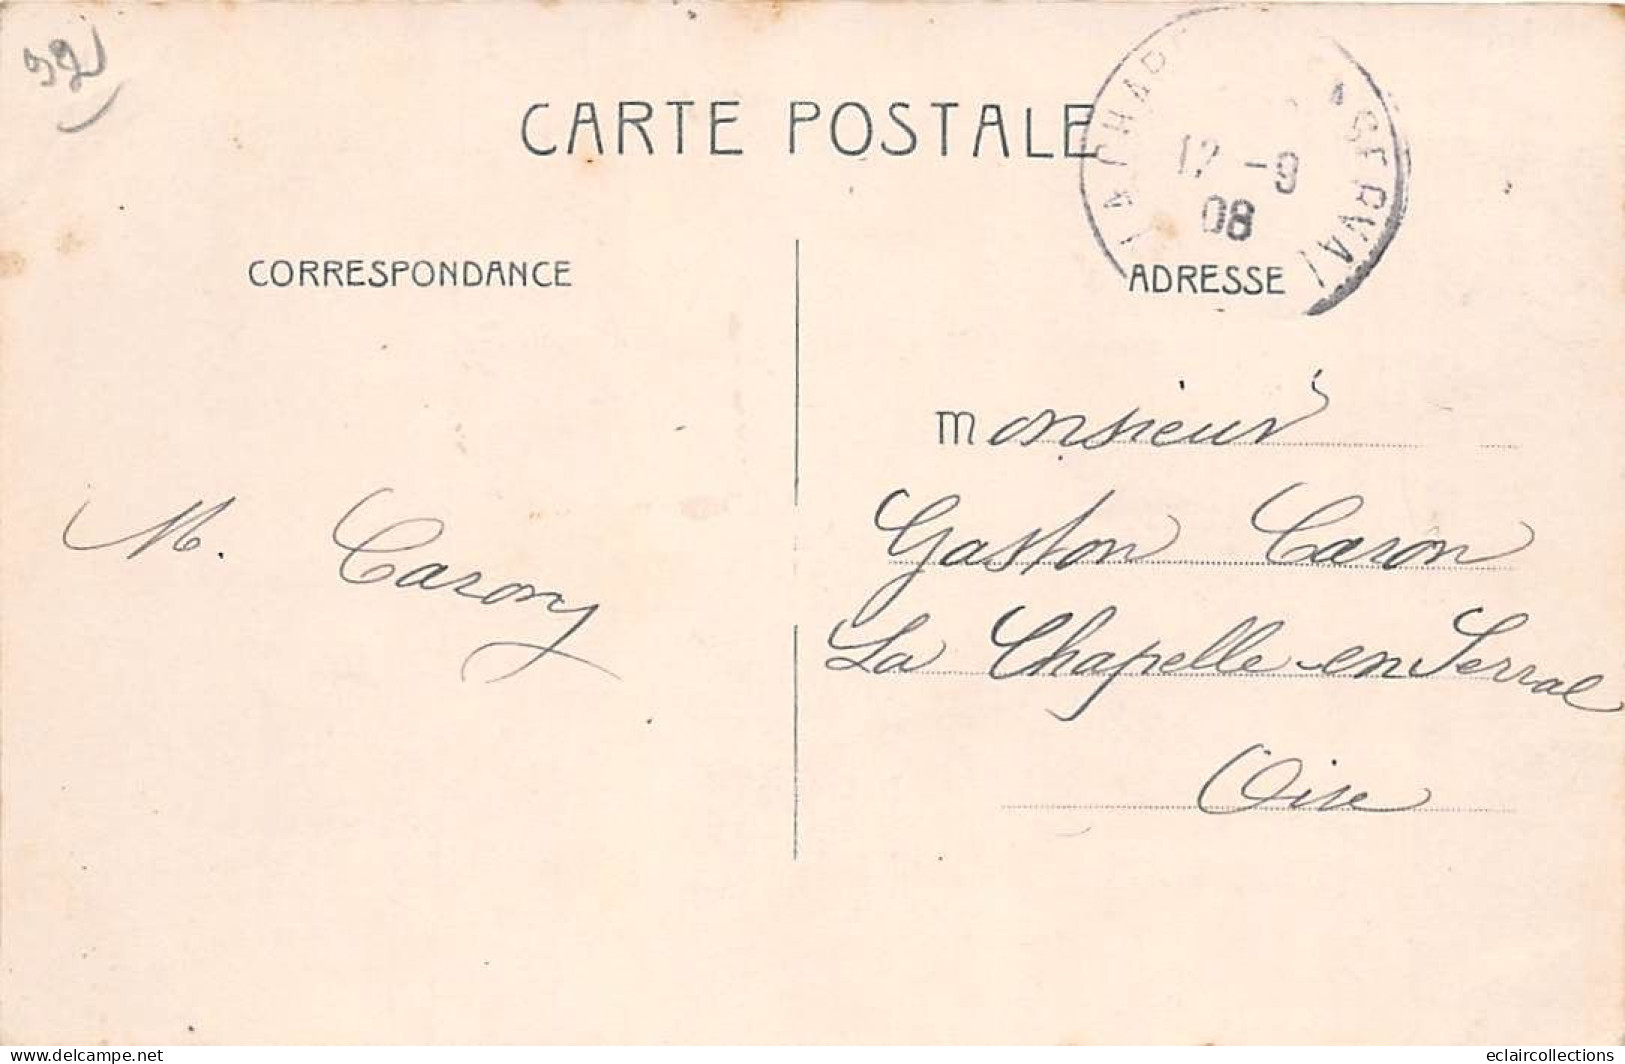 CARTE POSTALE
12 -9
08
CORRESPONDANCE
ADRESSE
Monsieur
M. Caron
Gaston Caron
La Chapelle-en Serval
Oise
www.delcampe.net
eclaircollections